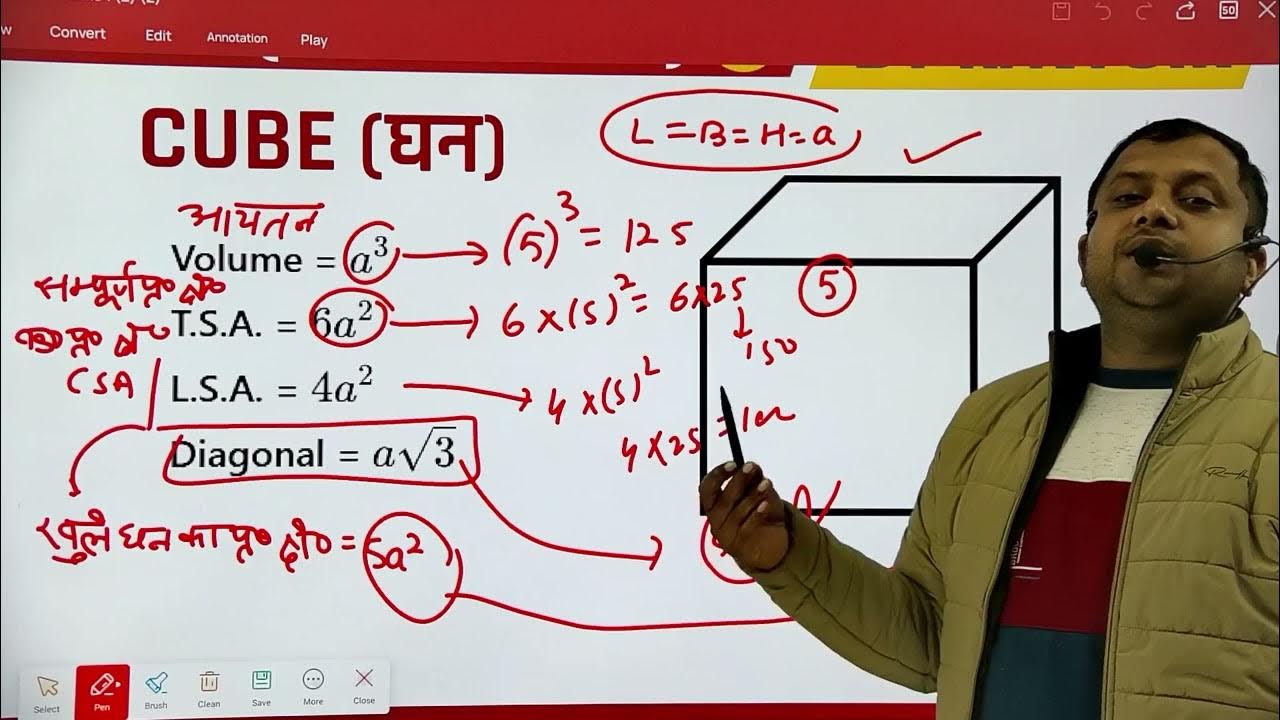 Convert Edit Annotation Play
50
CUBE (घन)
L=B=H=a
आयतन
Volume = a³ → (5)³ = 125
सम्पूर्ण पृ० क्षे०
T.S.A. = 6a² → 6×(5)² = 6×25
↓
150
5
पृ० क्षे०
CSA
L.S.A. = 4a² → 4×(5)²
4×25 = 100
Diagonal = a√3
खुले घन का पृ० क्षे० = 5a²
Select Pen Brush Clean Save More Close